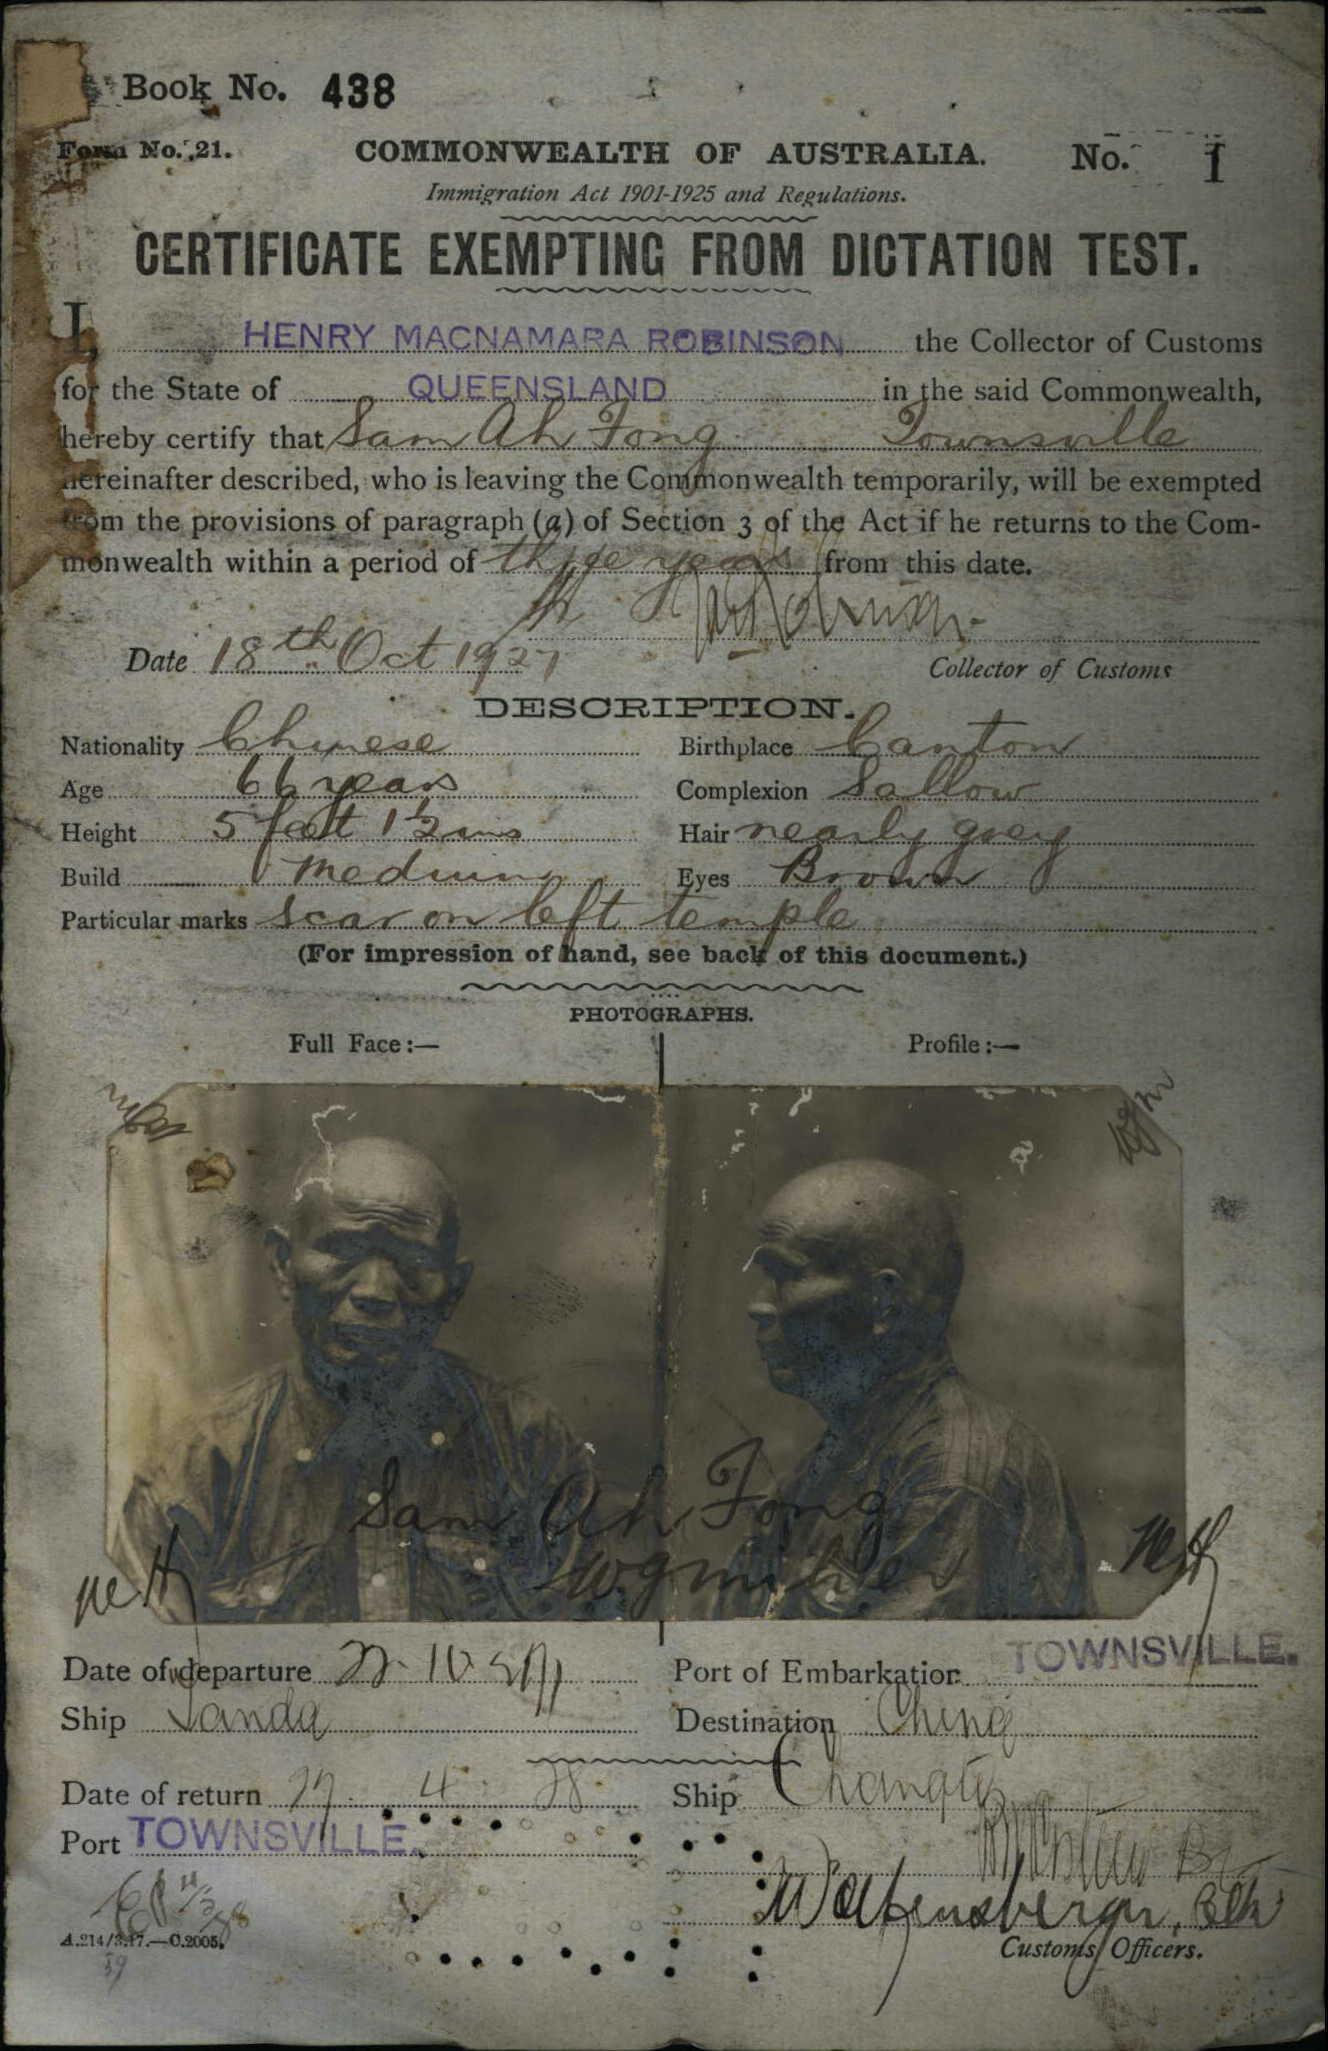 Book No. 438
Form No. 21. COMMONWEALTH OF AUSTRALIA. No. 1
Immigration Act 1901-1925 and Regulations.
CERTIFICATE EXEMPTING FROM DICTATION TEST.
I, HENRY MACNAMARA ROBINSON the Collector of Customs
for the State of QUEENSLAND in the said Commonwealth,
hereby certify that Sam Ah Fong Townsville
hereinafter described, who is leaving the Commonwealth temporarily, will be exempted
from the provisions of paragraph (a) of Section 3 of the Act if he returns to the Com-
monwealth within a period of three years from this date.
Date 18th Oct 1927
Collector of Customs
DESCRIPTION.
Nationality Chinese Birthplace Canton
Age 66 years Complexion Sallow
Height 5 feet 1½ ins Hair nearly grey
Build Medium Eyes Brown
Particular marks scar on left temple
(For impression of hand, see back of this document.)
PHOTOGRAPHS.
Full Face:— Profile:—
Sam Ah Fong
Date of departure 22.10.27 Port of Embarkation TOWNSVILLE.
Ship Tanda Destination China
Date of return 27 4 28 Ship Changte
Port TOWNSVILLE.
Customs Officers.